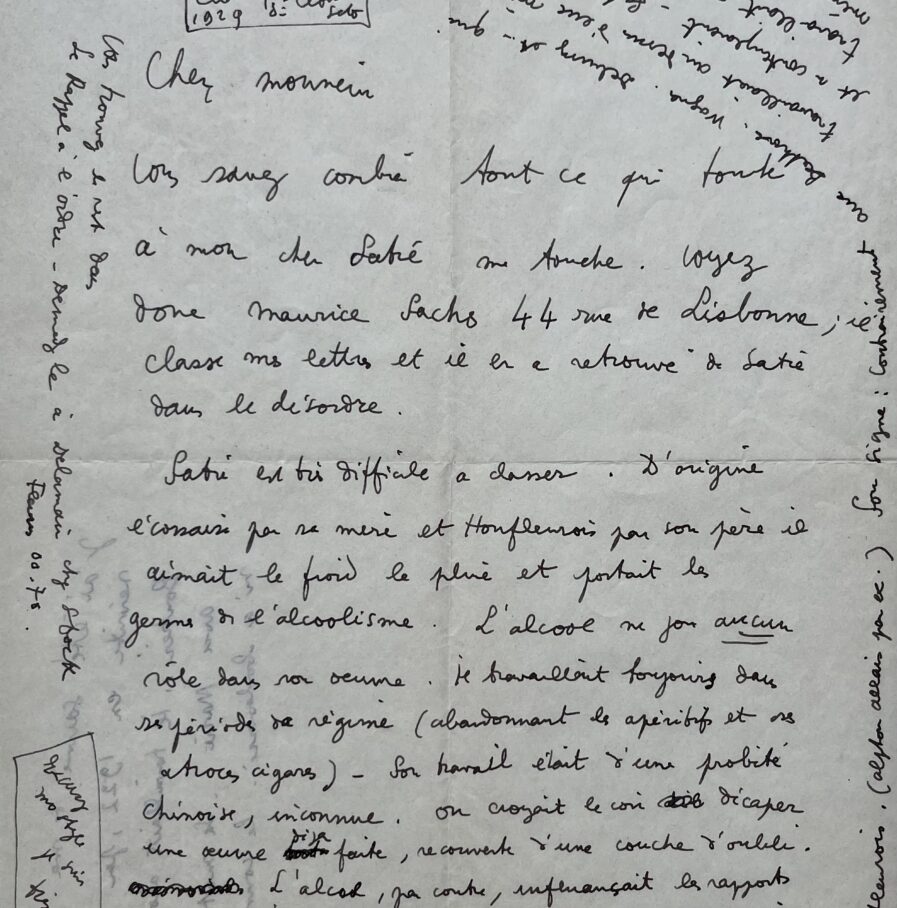 1929
Cher monsieur
Vous savez combien tout ce qui touche
à mon cher Satie me touche. Voyez
donc Maurice Sachs 44 rue de Lisbonne, il
classe mes lettres et il en a retrouvé de Satie
dans le désordre.
Satie est très difficile a classer. D'origine
écossaise par sa mère et Honfleurois par son père il
aimait le froid la pluie et portait les
germes de l'alcoolisme. L'alcool ne joua aucun
rôle dans son oeuvre. Il travaillait toujours dans
ses périodes de régime (abandonnant les apéritifs et ses
atroces cigares) - Son travail était d'une probité
chinoise, inconnue. On croyait le voir décaper
une œuvre déja faite, recouverte d'une couche d'oubli.
L'alcool, par contre, influençait les rapports
Vous trouverez le reste dans
Le Rappel à l'ordre - Demandez le à Delamain chez Stock
Fleurus 00.78.
(Alphonse Allais par ex.) Son signe : Contrairement
que
Wagner. Debussy etc - qui
travaillaient au dessus d'eux